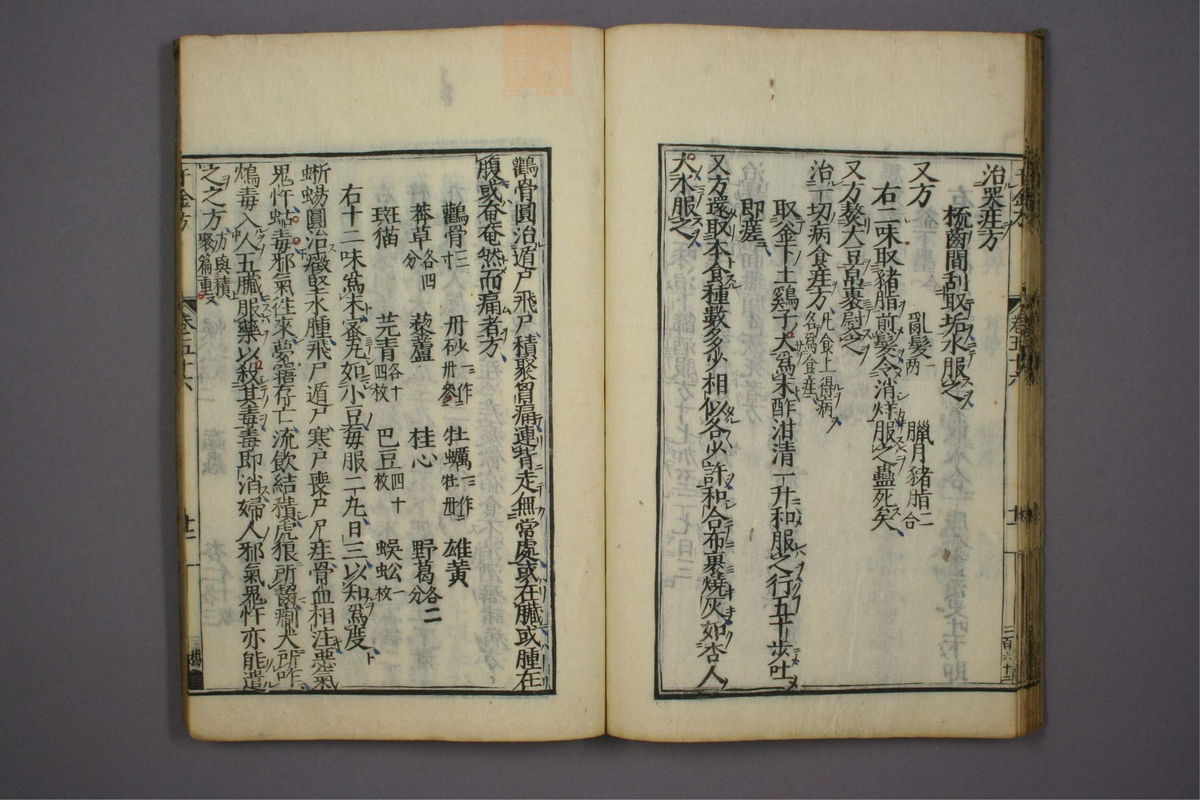 治哭疰方
梳齒間刮取垢水服之
又方 亂髮一兩 臘月豬脂二合
右二味取豬脂煎髮令消烊服之蠱死矣
又方熬大豆帛裹熨之
治一切病食疰方凡食上得病名為食疰
取釜下土鷄子大為末酢泔清一升和服之行五十步吐
即瘥
又方還取本食種數多少相似各少許和合布裹燒灰如杏人
大水服之
千金方 卷五十六
二百六十二
鸛骨圓治遁尸飛尸積聚胷痛連背走人無常處或在臟或腫在
腹或奄奄然而痛者方
鸛骨三寸 丹砂一作丹參 牡蠣一作牡丹 雄黃
莽草各四分 藜蘆 桂心 野葛各二分
斑猫 芫青各十四枚 巴豆四十枚 蜈蚣一枚
右十二味為末蜜丸如小豆每服二丸日三以知為度
蜥蜴圓治癥堅水腫飛尸遁尸寒尸喪尸尸疰骨血相注惡氣
鬼忤蛄毒邪氣往來夢寤存亡流飲結積虎狼所齧猘犬所咋
鴆毒入人五臟服藥以殺其毒毒即消婦人邪氣鬼忤亦能遣
之之方方與積聚篇重
千金方 卷五十六